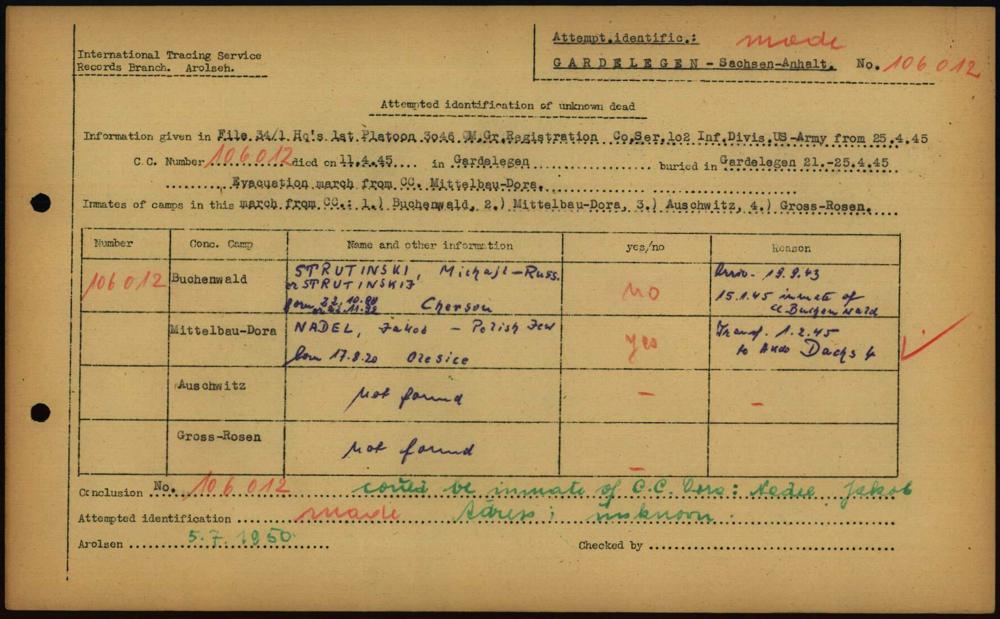 Attempt.identific.: made
International Tracing Service
Records Branch. Arolsen.
GARDELEGEN - Sachsen-Anhalt. No. 106012
Attempted identification of unknown dead
Information given in File 34/1 Hq's 1st Platoon 3046 QM.Gr.Registration Co.Ser.1o2 Inf.Divis.US-Army from 25.4.45
C.C. Number 106012 died on 11.4.45 in Gardelegen buried in Gardelegen 21.-25.4.45
Evacuation march from CC. Mittelbau-Dora.
Inmates of camps in this march from CC.: 1.) Buchenwald, 2.) Mittelbau-Dora, 3.) Auschwitz, 4.) Gross-Rosen.
Number Conc. Camp Name and other information yes/no Reason
106012 Buchenwald STRUTINSKI, Michajl-Russ. no Arriv. 19.9.43
or STRUTINSKIJ 15.1.45 inmate of
born Cherson cc Buchenwald
Mittelbau-Dora NADEL, Jakob - Polish Jew yes Transf. 1.2.45
born 17.8.20 Oresice to Kdo Dachs 4
Auschwitz not found - -
Gross-Rosen not found -
Conclusion No. 106012 could be inmate of C.C. Dora: Nadel Jakob
Attempted identification made Adress: unknown.
Arolsen 5.7.1950. Checked by